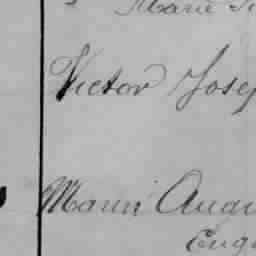 Marie
Victor Josep
Marin Augu
Eug